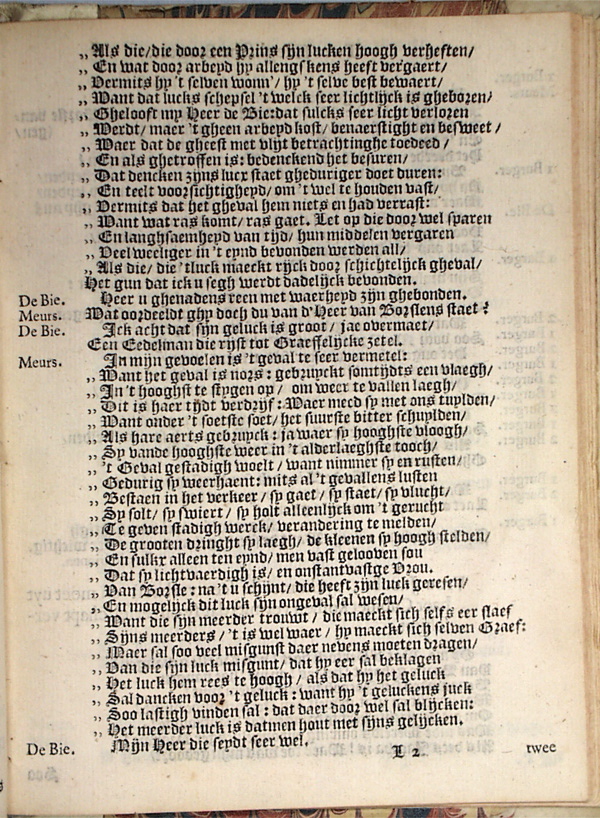 „ Als die/die door een Prins sijn lucken hoogh verheften/
„ En wat door arbeyd hy allengskens heeft vergaert/
„ Vermits hy 't selven wonn'/ hy 't selve best bewaert/
„ Want dat lucks schepsel 't welck seer lichtlijck is gheboren/
„ Ghelooft my Heer de Bie: dat sulcks seer licht verloren
„ Werdt/ maer 't gheen arbeyd kost/ benaerstight en besweet/
„ Waer dat de gheest met vlijt betrachtinghe toedeed/
„ En als ghetroffen is: bedenckend het besuren/
„ Dat dencken zijns lucx staet gheduriger doet duren:
„ En teelt voorsichtigheyd/ om 't wel te houden vast/
„ Vermits dat het gheval hem niets en had verrast:
„ Want wat ras komt/ ras gaet. Let op die door wel sparen
„ En langhsaemheyd van tijd/ hun middelen vergaren
„ Veel weeliger in 't eynd bevonden werden all/
„ Als die/ die 'tluck maeckt rijck door schichtelijck gheval/
Het gun dat ick u segh werdt dadelijck bevonden.
De Bie. Heer u ghenadens reen met waerheyd zijn ghebonden.
Meurs. Wat oordeeldt ghy doch du van d'Heer van Borslens staet?
De Bie. Ick acht dat sijn geluck is groot/ jae overmaet/
Een Eedelman die rijst tot Graeffelijcke zetel.
Meurs. In mijn gevoelen is 't geval te seer vermetel:
„ Want het geval is nors: gebruyckt somtijdts een vlaegh/
„ In 't hooghst te stygen op/ om weer te vallen laegh/
„ Dit is haer tijdt verdrijf: Waer med sy met ons tuylden/
„ Want onder 't soetste soet/ het suurste bitter schuylden/
„ Als hare aerts gebruyck: ja waer sy hooghste vloogh/
„ Sy vande hooghste weer in 't alderlaeghste tooch/
„ 't Geval gestadigh woelt/ want nimmer sy en rusten/
„ Gedurig sy weerhaent: mits al 't gevallens lusten
„ Bestaen in het verkeer/ sy gaet/ sy staet/ sy vlucht/
„ Sy solt/ sy swiert/ sy holt alleenlijck om 't gerucht
„ Te geven stadigh werck/ verandering te melden/
„ De grooten dringht sy laegh/ de kleenen sy hoogh stelden/
„ En sulkx alleen ten eynd/ men vast gelooven sou
„ Dat sy lichtvaerdigh is/ en onstantvastge Vrou.
„ Van Borsle: na 't u schijnt/ die heeft zijn luck geresen/
„ En mogelijck dit luck sijn ongeval sal wesen/
„ Want die sijn meerder trouwt/ die maeckt sich selfs eer slaef
„ Sijns meerders/ 't is wel waer/ hy maeckt sich selven Graef:
„ Maer sal soo veel misgunst daer nevens moeten dragen/
„ Van die sijn luck misgunt/ dat hy eer sal beklagen
„ Het luck hem rees te hoogh/ als dat hy het geluck
„ Sal dancken voor 't geluck: want hy 't geluckens juck
„ Soo lastigh vinden sal: dat daer door wel sal blijcken:
„ Het meerder luck is datmen hout met sijns gelijcken.
De Bie. Mijn Heer die seydt seer wel.
L 2 twee